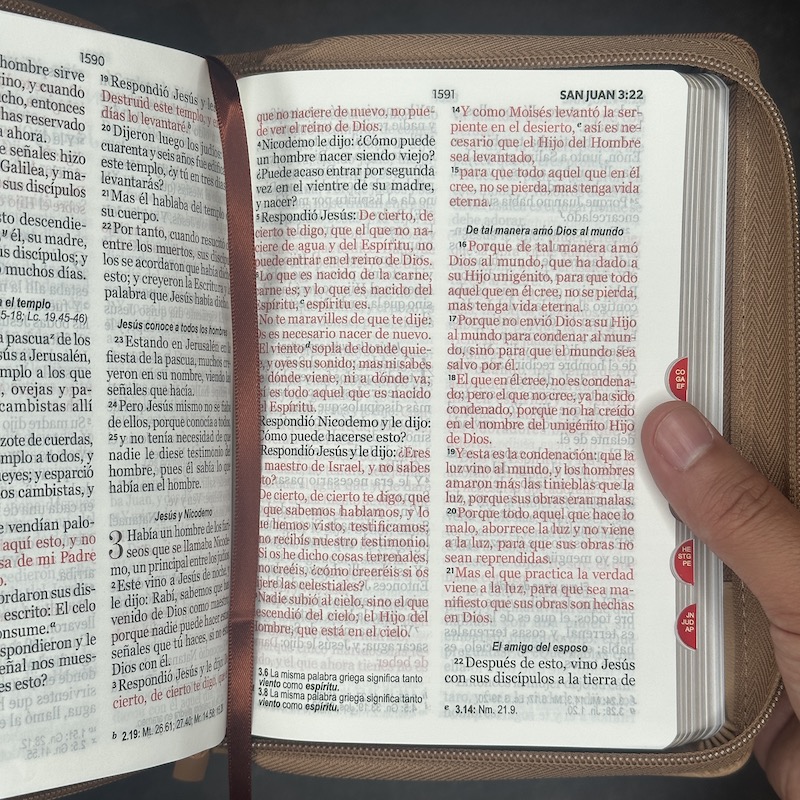 1590
hombre sirve
ino, y cuando
cho, entonces
has reservado
ahora.
e señales hizo
Galilea, y ma-
sus discípulos
sto descendie-
él, su madre,
us discípulos; y
muchos días.
a el templo
5-18; Lc. 19.45-46)
pascua de los
ús a Jerusalén,
mplo a los que
, ovejas y pa-
cambistas allí
zote de cuerdas,
mplo a todos, y
ueyes; y esparció
os cambistas, y
e vendían palo-
aquí esto, y no
sa de mi Padre
o.
ordaron sus dis-
escrito: El celo
onsume.
spondieron y le
eñal nos mues-
es esto?
19 Respondió Jesús y les
Destruid este templo, y
días lo levantaré. b
20 Dijeron luego los judíos:
cuarenta y seis años fue
este templo, ¿y tú en tres
levantarás?
21 Mas él hablaba del templo
su cuerpo.
22 Por tanto, cuando resucitó
entre los muertos, sus
los se acordaron que había
esto; y creyeron la Escritura y
palabra que Jesús había
Jesús conoce a todos los hombres
23 Estando en Jerusalén en
fiesta de la pascua, muchos
yeron en su nombre, viendo
señales que hacía.
24 Pero Jesús mismo no se
de ellos, porque conocía a
25 y no tenía necesidad de
nadie le diese testimonio
hombre, pues él sabía lo
había en el hombre.
Jesús y Nicodemo
3 Había un hombre de los
seos que se llamaba
mo, un principal entre los judíos.
2 Este vino a Jesús de noche, y
le dijo: Rabí, sabemos que
venido de Dios como maestro;
porque nadie puede hacer
señales que tú haces, si no
Dios con él.
3 Respondió Jesús y le dijo:
cierto, de cierto te digo, que
b 2.19: Mt. 26.61; 27.40; Mr. 14.58; 15.29
1591
SAN JUAN 3:22
que no naciere de nuevo, no pue-
de ver el reino de Dios.
4 Nicodemo le dijo: ¿Cómo puede
un hombre nacer siendo viejo?
¿Puede acaso entrar por segunda
vez en el vientre de su madre,
y nacer?
5 Respondió Jesús: De cierto, de
cierto te digo, que el que no na-
ciere de agua y del Espíritu, no
puede entrar en el reino de Dios.
Lo que es nacido de la carne,
carne es; y lo que es nacido del
Espíritu, c espíritu es.
No te maravilles de que te dije:
Os es necesario nacer de nuevo.
El viento d sopla de donde quie-
e, y oyes su sonido; mas ni sabes
e dónde viene, ni a dónde va;
sí es todo aquel que es nacido
el Espíritu.
Respondió Nicodemo y le dijo:
Cómo puede hacerse esto?
Respondió Jesús y le dijo: ¿Eres
maestro de Israel, y no sabes
to?
De cierto, de cierto te digo, que
que sabemos hablamos, y lo
e hemos visto, testificamos;
no recibís nuestro testimonio.
Si os he dicho cosas terrenales,
no creéis, ¿cómo creeréis si os
jere las celestiales?
Nadie subió al cielo, sino el que
escendió del cielo; el Hijo del
ombre, que está en el cielo.
3.6 La misma palabra griega significa tanto
viento como espíritu.
3.8 La misma palabra griega significa tanto
viento como espíritu.
14 Y como Moisés levantó la ser-
piente en el desierto, e así es ne-
cesario que el Hijo del Hombre
sea levantado,
15 para que todo aquel que en él
cree, no se pierda, mas tenga vida
eterna.
De tal manera amó Dios al mundo
16 Porque de tal manera amó
Dios al mundo, que ha dado a
su Hijo unigénito, para que todo
aquel que en él cree, no se pierda,
mas tenga vida eterna.
17 Porque no envió Dios a su Hijo
al mundo para condenar al mun-
do, sino para que el mundo sea
salvo por él.
18 El que en él cree, no es condena-
do; pero el que no cree, ya ha sido
condenado, porque no ha creído
en el nombre del unigénito Hijo
de Dios.
19 Y esta es la condenación: que la
luz vino al mundo, y los hombres
amaron más las tinieblas que la
luz, porque sus obras eran malas.
20 Porque todo aquel que hace lo
malo, aborrece la luz y no viene
a la luz, para que sus obras no
sean reprendidas.
21 Mas el que practica la verdad
viene a la luz, para que sea ma-
nifiesto que sus obras son hechas
en Dios.
El amigo del esposo
22 Después de esto, vino Jesús
con sus discípulos a la tierra de
e 3.14: Nm. 21.9.
CO
GA
EF
HE
STG
PE
JN
JUD
AP